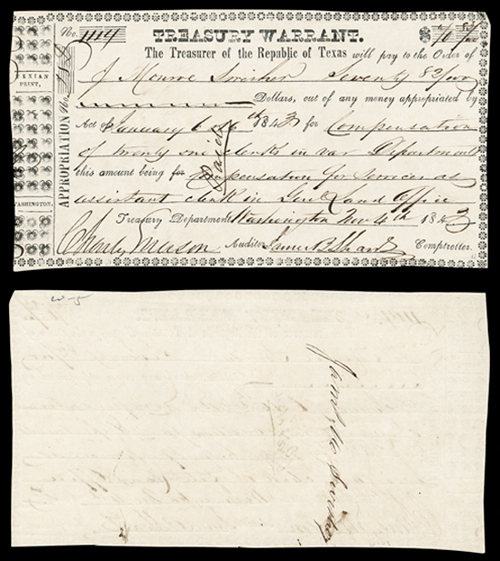 No. 1114 TREASURY WARRANT. $ 70 83/100
The Treasurer of the Republic of Texas will pay to the Order of
J Monroe Swisher Seventy 83/100
Dollars, out of any money appropriated by
Act of January 6 &16th 1843 for Compensation
of twenty clerks in Departments
this amount being for compensation for services as
assistant clerk in Genl Land Office
Treasury Department Washington Nov 4th 1843
Charles Mason Auditor James B Shaw Comptroller.
Paid
APPROPRIATION No.
TEXIAN
PRINT,
WASHINGTON.
W-5
James M Swisher